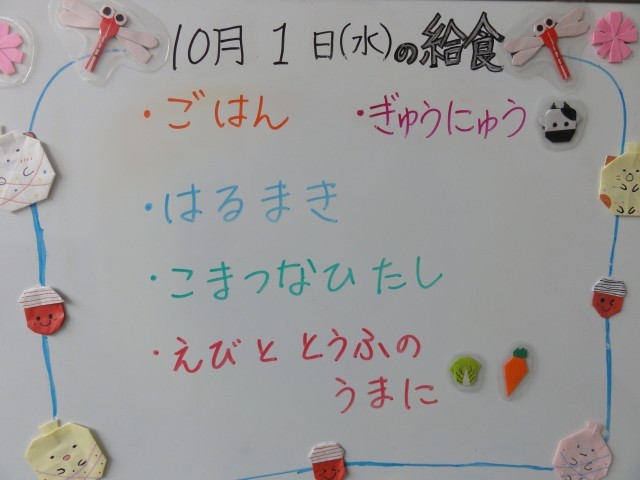 10月1日(水)の給食
・ごはん ・ぎゅうにゅう
・はるまき
・こまつなひたし
・えびととうふの
うまに